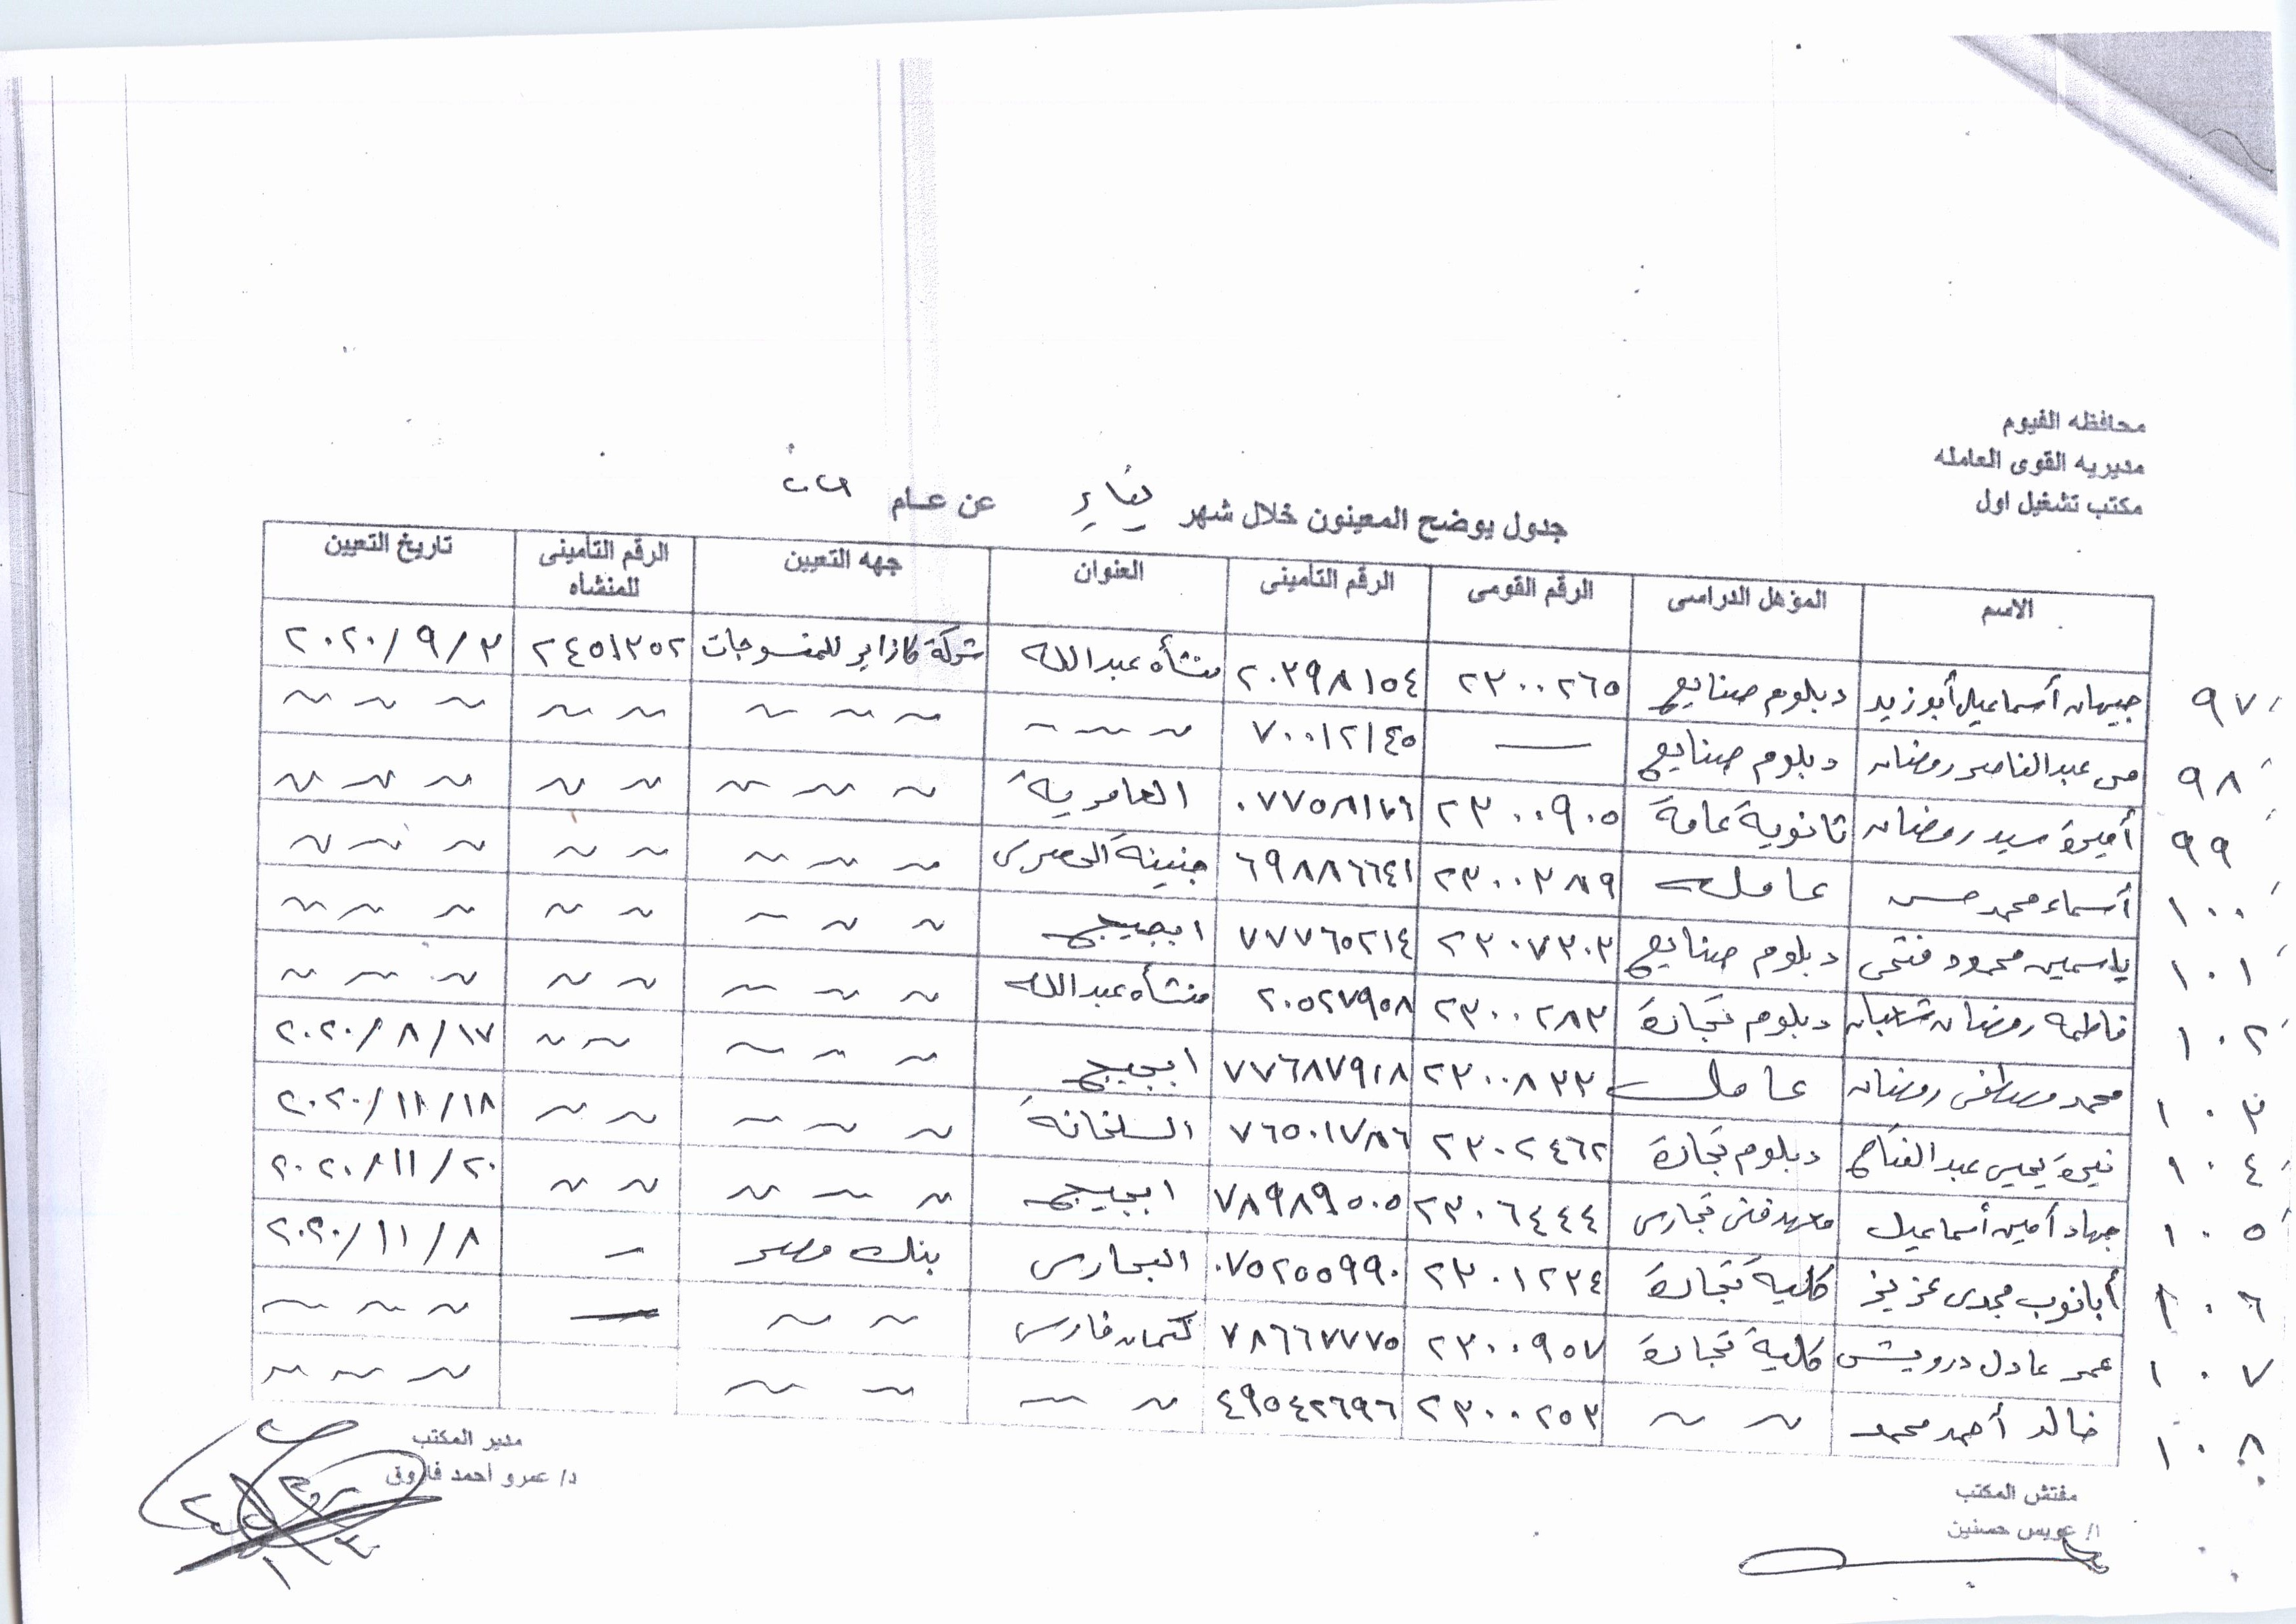 محافظه الفيوم
مديريه القوى العامله
مكتب تشغيل اول
جدول يوضح المعينون خلال شهر يناير عن عام ٢٠٢١
الاسم المؤهل الدراسى الرقم القومى الرقم التأمينى العنوان جهه التعيين الرقم التأمينى للمنشاه تاريخ التعيين
٩٧ جيهان أسماعيل أبوزيد دبلوم صنايع ٢٣٠٠٢٦٥ ٢٠٣٩٨١٥٤ منشأه عبدالله شركة كازاير للمنسوجات ٢٤٥١٣٥٢ ٢٠٢٠/٩/٣
٩٨ مى عبدالناصر رمضان دبلوم صنايع — ٧٠٠١٢١٤٥ ~ ~ ~ ~ ~ ~ ~ ~ ~ ~ ~
٩٩ أميرة سيد رمضان ثانوية عامة ٢٣٠٠٩٠٥ العامرية ~ ~ ~ ~ ~ ~ ~ ~
١٠٠ أسماء محمد حسن عامله ٢٣٠٠٣٨٩ ٦٩٨٨٦٦٤١ جنينة الحصرى ~ ~ ~ ~ ~ ~ ~ ~
١٠١ ياسمين محمود فتحى دبلوم صنايع ٢٣٠٧٣٠٣ ٧٧٧٦٥٢١٤ ابجيج ~ ~ ~ ~ ~ ~ ~ ~
١٠٢ فاطمه رمضان شعبان دبلوم تجارة ٢٣٠٠٢٨٣ ٢٠٥٢٧٩٥٨ منشأه عبدالله ~ ~ ~ ~ ~ ~ ~ ~
١٠٣ محمد مصطفى رمضان عامل ٢٣٠٠٨٣٣ ٧٧٦٨٧٩١٨ ابجيج ~ ~ ~ ~ ~ ٢٠٢٠/٨/١٧
١٠٤ نيرة يحيى عبدالفتاح دبلوم تجارة ٢٣٠٢٤٦٢ ٧٦٥٠١٧٨٦ السلخانة ~ ~ ~ ~ ~ ٢٠٢٠/١١/١٨
١٠٥ جهاد أمين أسماعيل معهد فنى تجارى ٢٣٠٦٤٤٤ ٧٨٩٨٩٥٠٥ ابجيج ~ ~ ~ ~ ~ ٢٠٢٠/١١/٢٠
١٠٦ أبانوب مجدى عزيز كلية تجارة ٢٣٠١٢٣٤ ٠٧٥٢٥٥٩٩٠ البحارى بنك مصر – ٢٠٢٠/١١/٨
١٠٧ عمر عادل درويش كلية تجارة ٢٣٠٠٩٥٧ ٧٨٦٦٧٧٧٥ كحمان فارس ~ ~ — ~ ~ ~
١٠٨ خالد أحمد محمد ~ ~ ٢٣٠٠٢٥٣ ٤٩٥٤٢٦٩٦ ~ ~ ~ ~ ~ ~ ~
مدير المكتب
د/ عمرو احمد فاروق
مفتش المكتب
ا/ عويس حسنين